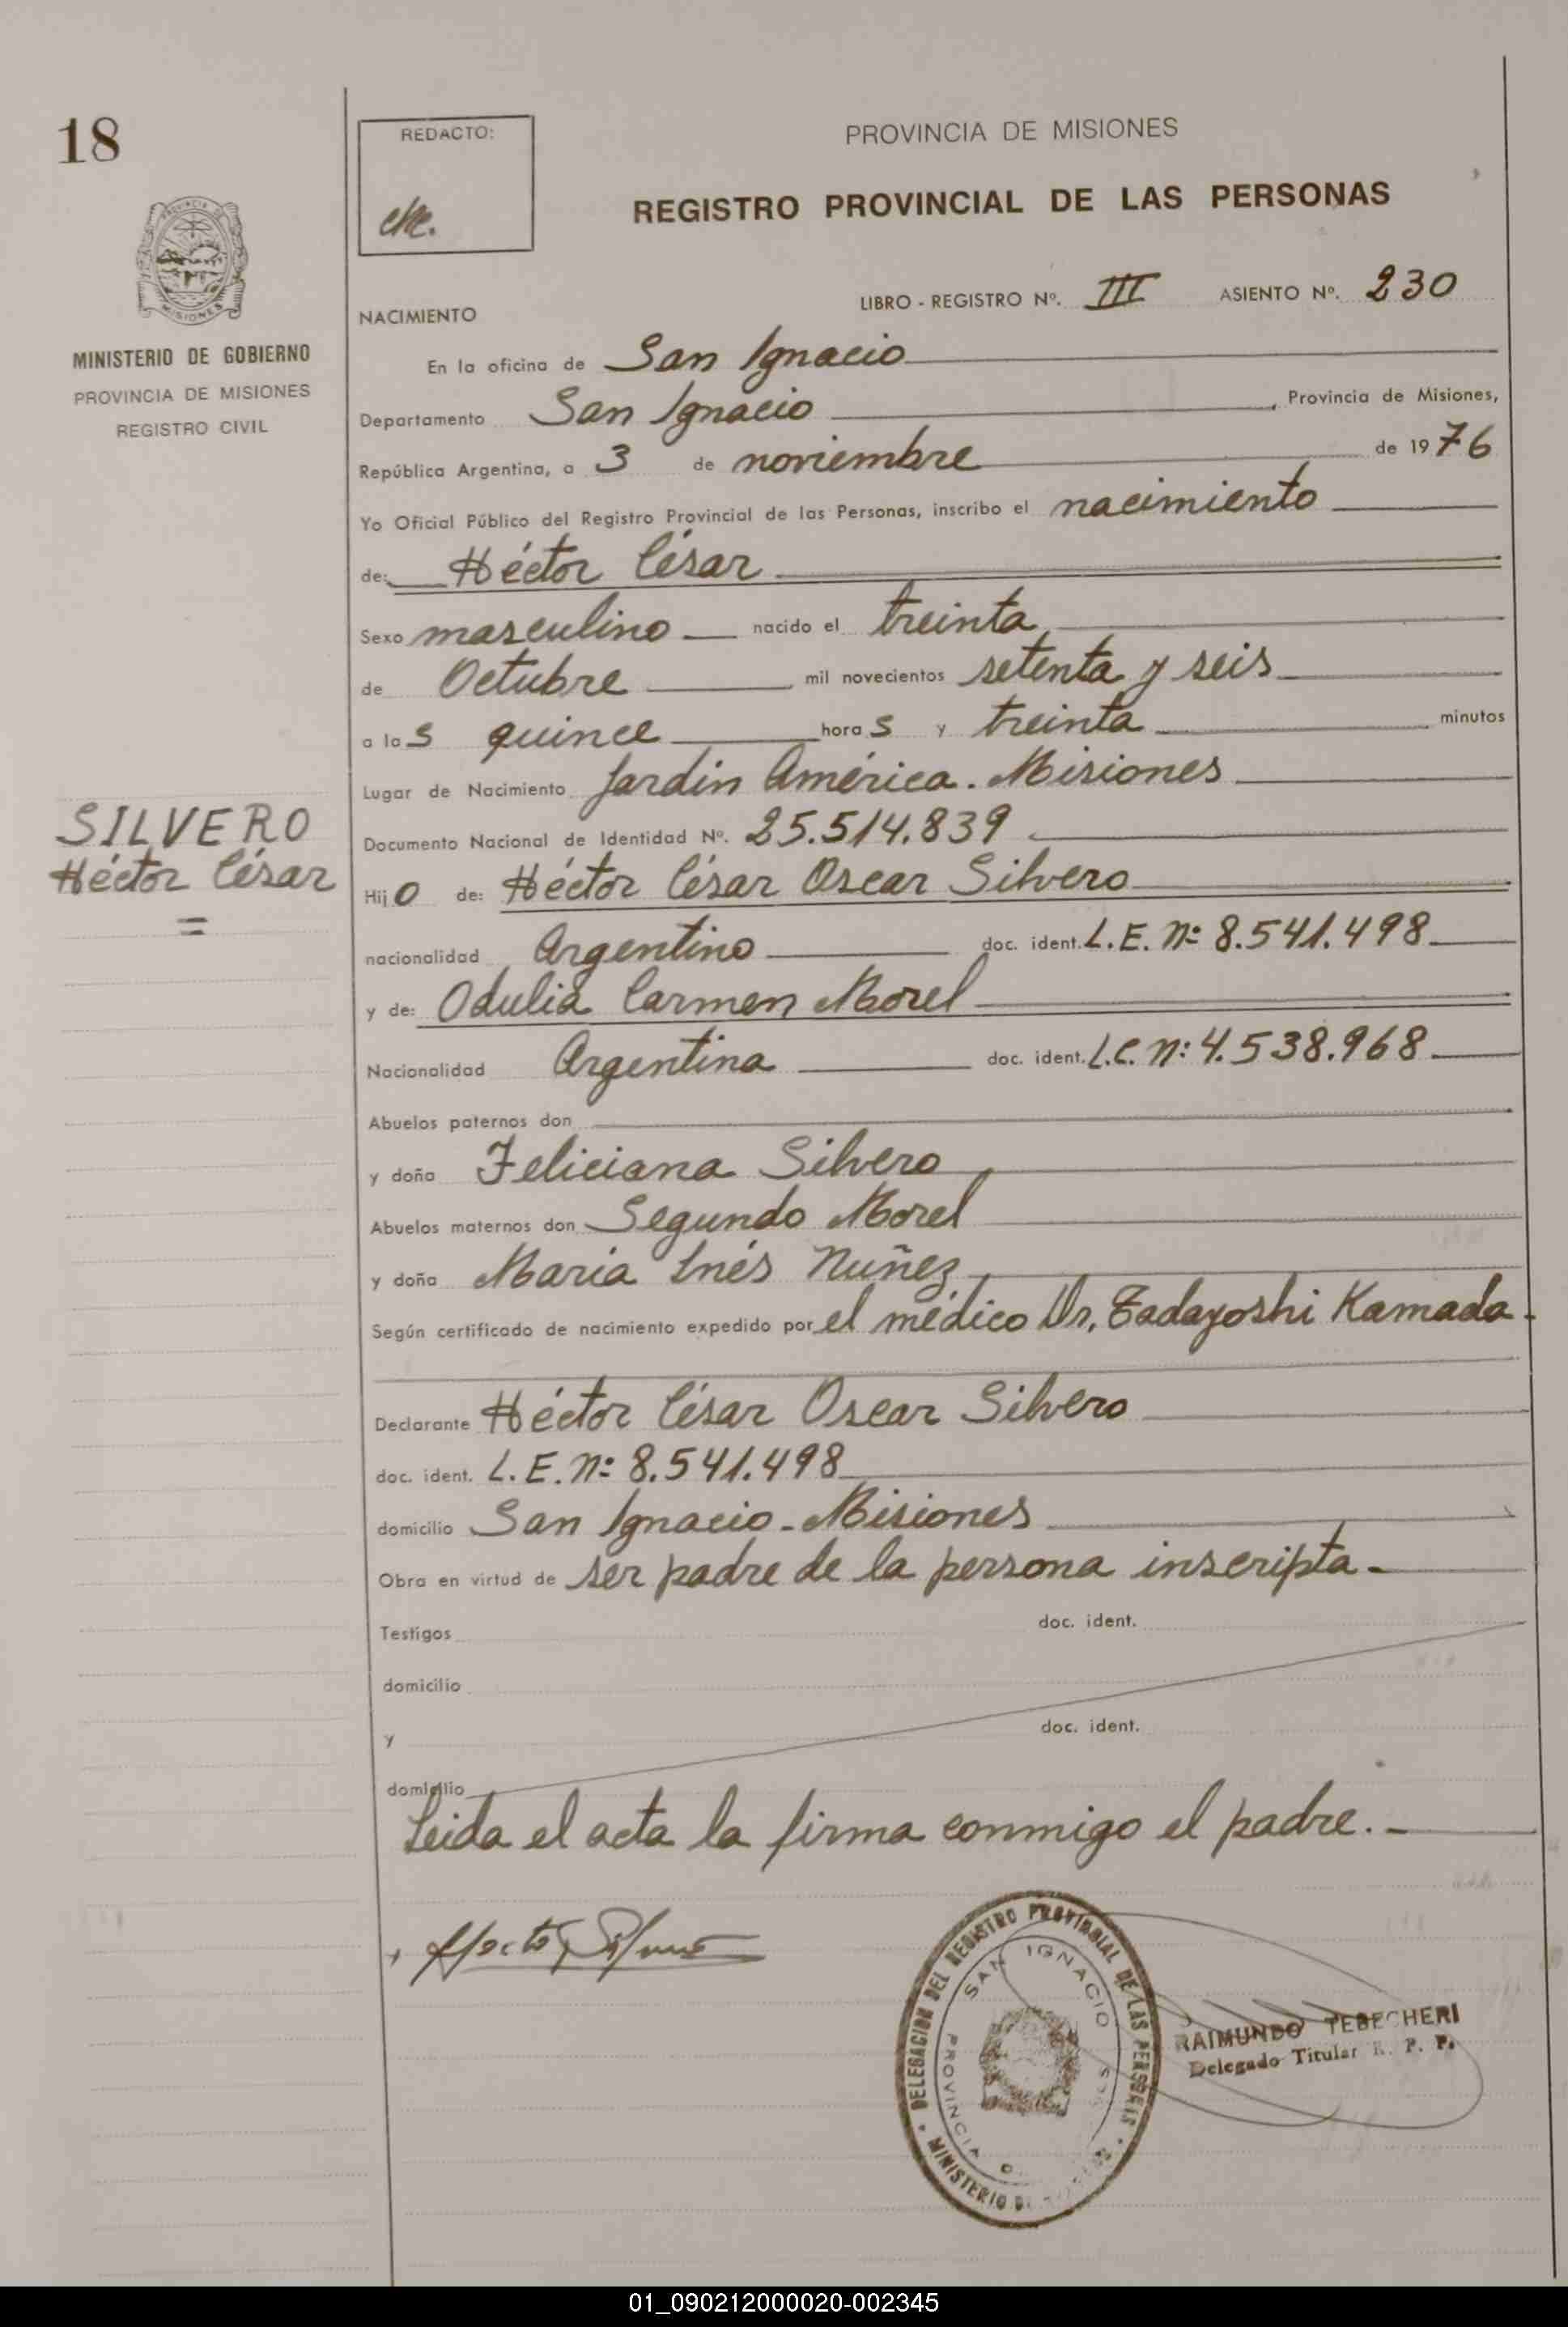 18
REDACTO:
PROVINCIA DE MISIONES
REGISTRO PROVINCIAL DE LAS PERSONAS
LIBRO - REGISTRO Nº. III ASIENTO Nº. 230
NACIMIENTO
MINISTERIO DE GOBIERNO
PROVINCIA DE MISIONES
REGISTRO CIVIL
En la oficina de San Ignacio
Departamento San Ignacio, Provincia de Misiones,
República Argentina, a 3 de noviembre de 1976
Yo Oficial Público del Registro Provincial de las Personas, inscribo el nacimiento
de: Héctor César
Sexo masculino nacido el treinta
de Octubre mil novecientos setenta y seis
a las quince horas y treinta minutos
Lugar de Nacimiento Jardín América. Misiones
SILVERO
Héctor César
=
Documento Nacional de Identidad Nº. 25.514.839
Hijo de: Héctor César Oscar Silvero
nacionalidad Argentino doc. ident. L.E. Nº 8.541.498
y de: Odulia Carmen Morel
Nacionalidad Argentina doc. ident. L.C. Nº: 4.538.968
Abuelos paternos don
y doña Feliciana Silvero
Abuelos maternos don Segundo Morel
y doña María Inés Nuñez
Según certificado de nacimiento expedido por el médico Dr. Tadayoshi Kamada.
Declarante Héctor César Oscar Silvero
doc. ident. L.E. Nº 8.541.498
domicilio San Ignacio - Misiones
Obra en virtud de ser padre de la persona inscripta.-
Testigos doc. ident.
domicilio
y doc. ident.
domicilio
Leida el acta la firma conmigo el padre.-
DELEGACION DEL REGISTRO PROVINCIAL DE LAS PERSONAS
SAN IGNACIO
PROVINCIA
MINISTERIO
RAIMUNDO TEBECHERI
Delegado Titular R. P. P.
01_090212000020-002345